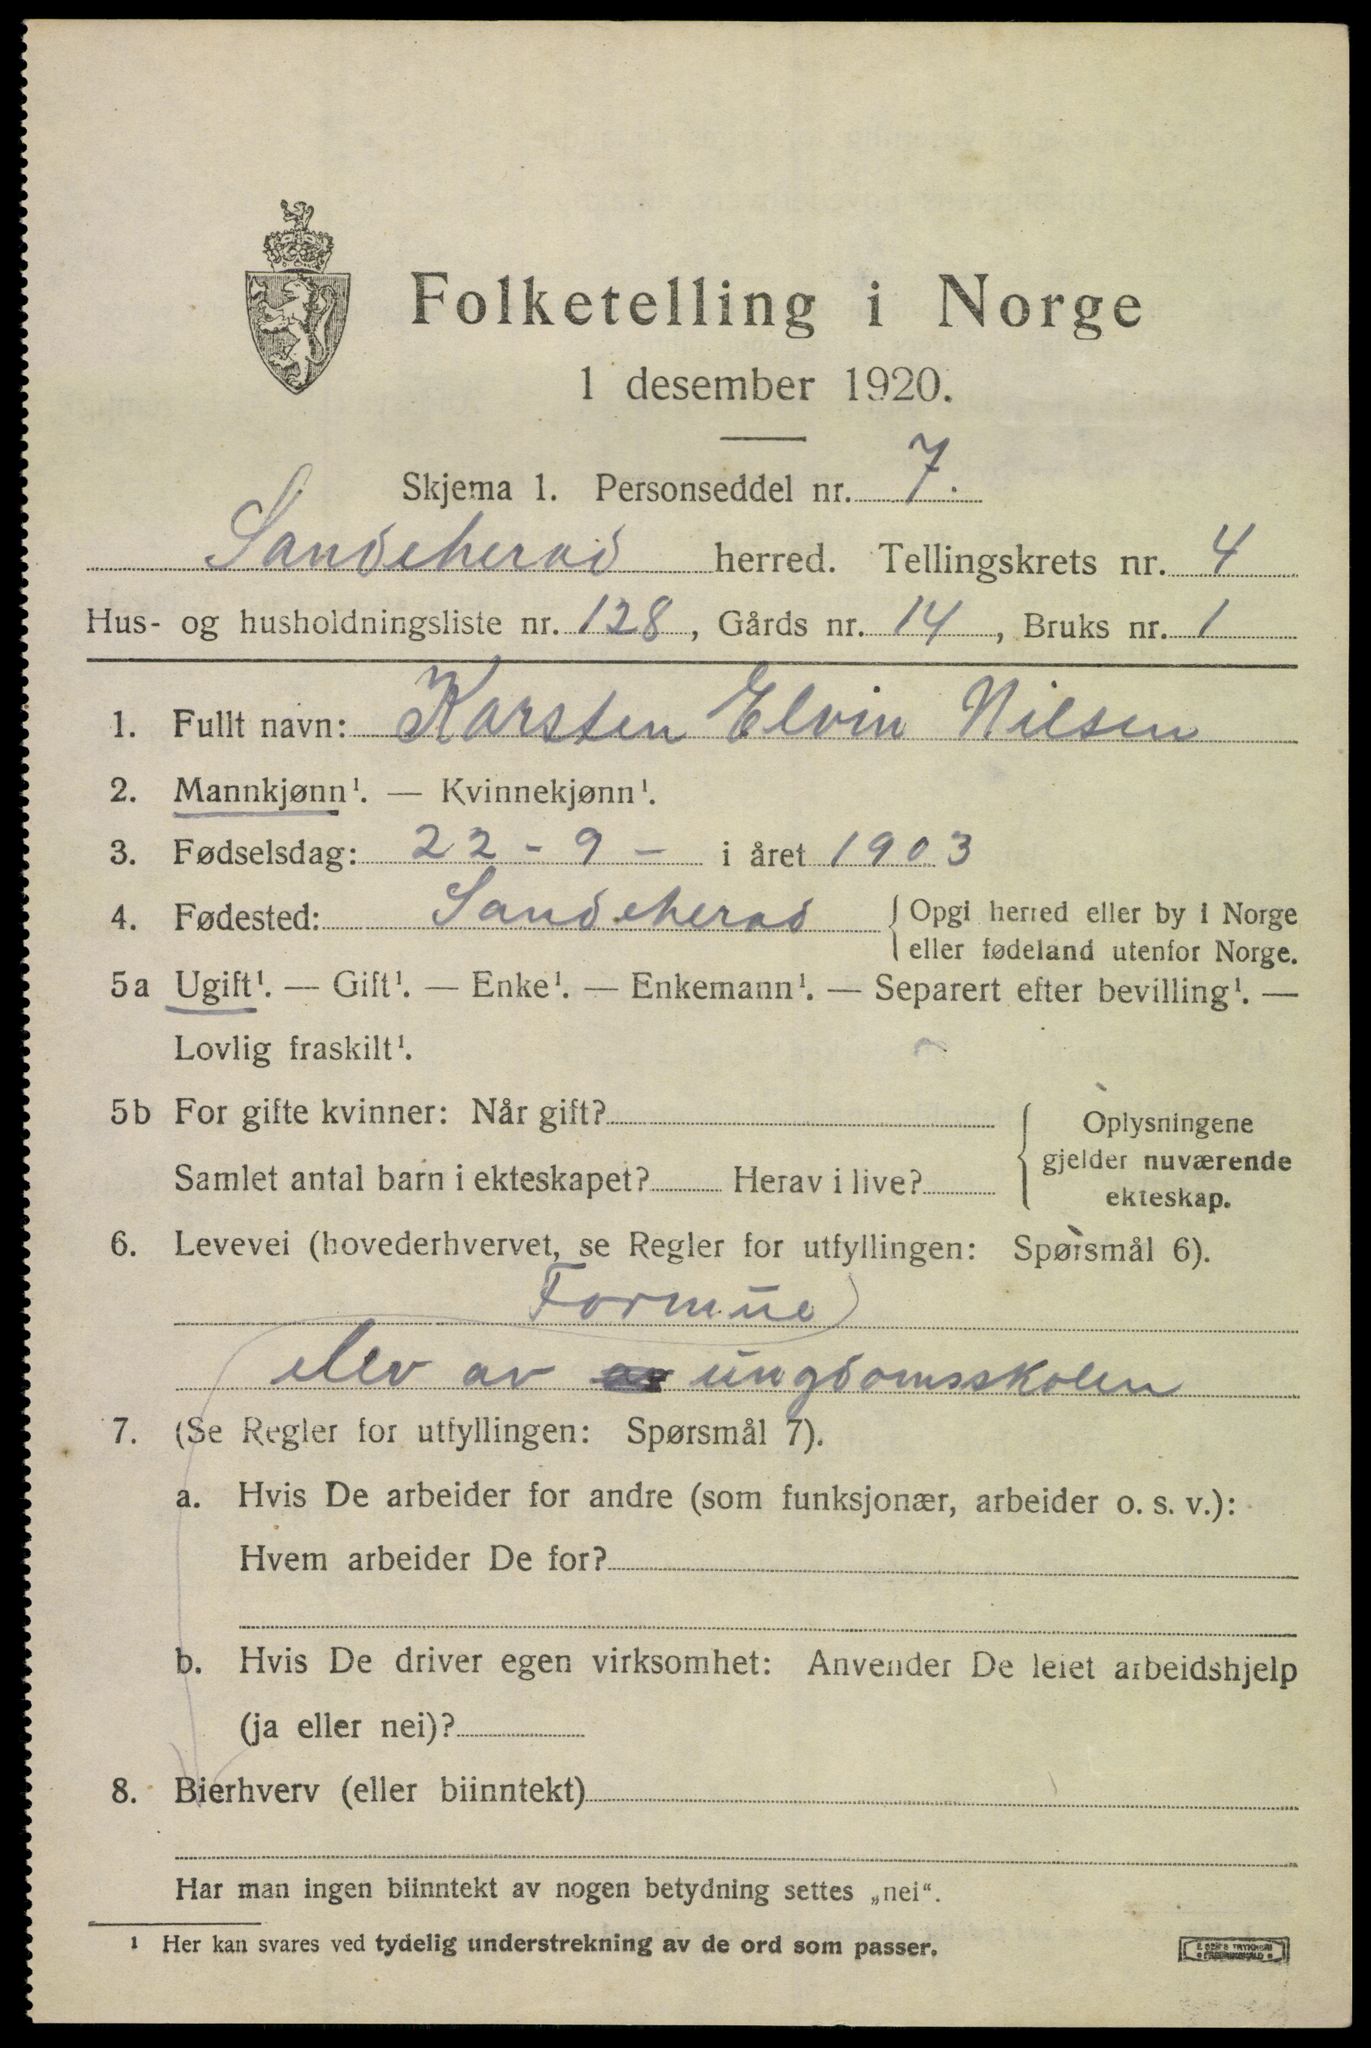 Folketelling i Norge
1 desember 1920.
Skjema 1. Personseddel nr. 7.
Sandeherad herred. Tellingskrets nr. 4
Hus- og husholdningsliste nr. 128, Gårds nr. 14, Bruks nr. 1
1. Fullt navn: Karsten Elvin Nilsen
2. Mannkjønn¹. — Kvinnekjønn¹.
3. Fødselsdag: 22 - 9 - i året 1903
4. Fødested: Sandeherad { Opgi herred eller by i Norge
eller fødeland utenfor Norge.
5a Ugift¹. — Gift¹. — Enke¹. — Enkemann¹. — Separert efter bevilling¹. —
Lovlig fraskilt¹.
5b For gifte kvinner: Når gift?
Samlet antal barn i ekteskapet? Herav i live?
{ Oplysningene
gjelder nuværende
ekteskap.
6. Levevei (hovederhvervet, se Regler for utfyllingen: Spørsmål 6).
Formue
elev av ungdomsskolen
7. (Se Regler for utfyllingen: Spørsmål 7).
a. Hvis De arbeider for andre (som funksjonær, arbeider o. s. v.):
Hvem arbeider De for?
b. Hvis De driver egen virksomhet: Anvender De leiet arbeidshjelp
(ja eller nei)?
8. Bierhverv (eller biinntekt)
Har man ingen biinntekt av nogen betydning settes „nei“.
¹ Her kan svares ved tydelig understrekning av de ord som passer.